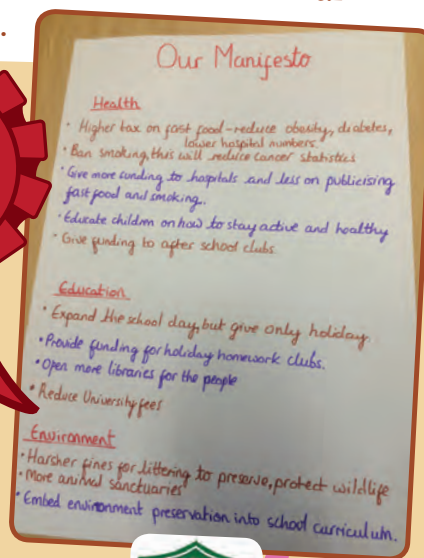 Our Manifesto
Health
• Higher tax on fast food - reduce obesity, diabetes,
lower hospital numbers.
• Ban smoking, this will reduce cancer statistics
• Give more funding to hospitals and less on publicising
fast food and smoking.
• Educate children on how to stay active and healthy
• Give funding to after school clubs
Education
• Expand the school day, but give only holiday.
• Provide funding for holiday homework clubs.
• Open more libraries for the people
• Reduce University fees
Environment
• Harsher fines for littering to preserve, protect wildlife
• More animal sanctuaries
• Embed environment preservation into school curriculum.